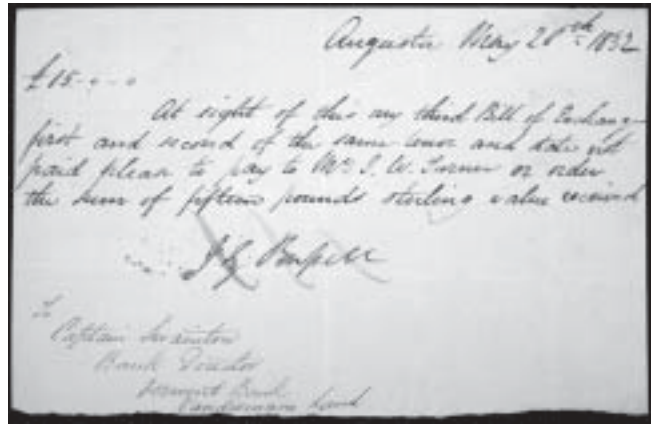 Augusta May 20th 1832
£15 - " - "
At sight of this my third Bill of Exchange
first and second of the same tenor and date not
paid please to pay to Mr J. W. Turner or order
the sum of fifteen pounds sterling value received
J G
To
Captain Swanston
Bank Director
Derwent Bank
Vandiemans Land